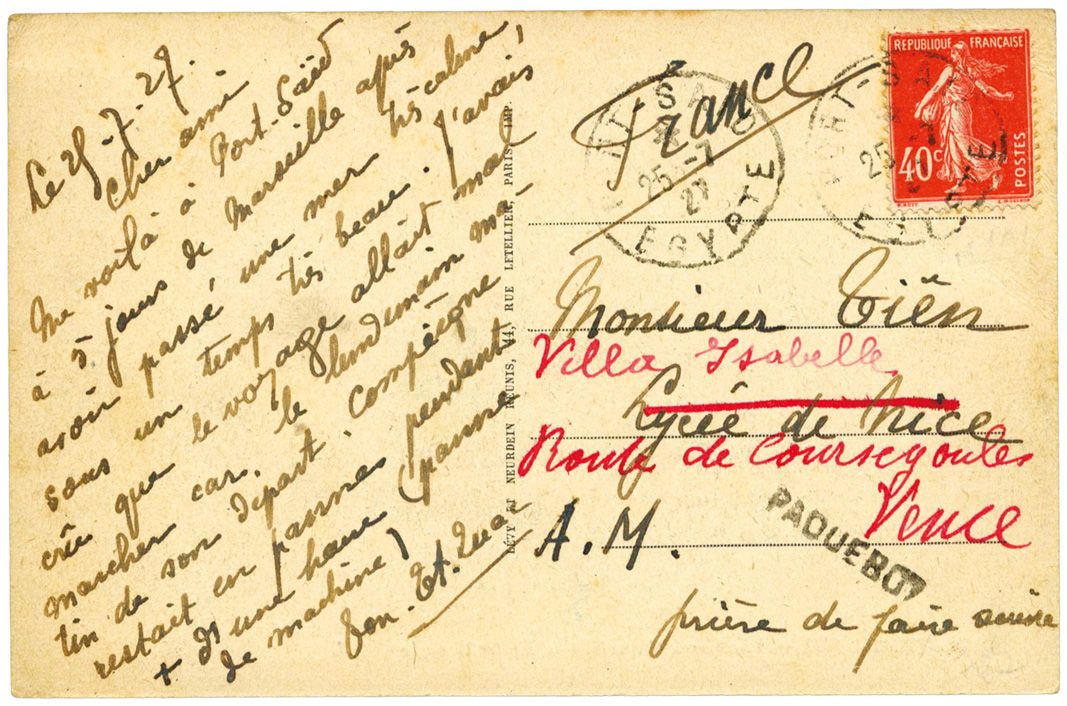 Le 25-7-27.
Cher ami
Me voilà à Port-Saïd
à 5 jours de Marseille après
avoir passé une mer très calme,
sous un temps très beau. J'avais
crée que le voyage allait mal
marcher car, le lendemain ma-
tin de son départ, Compiègne
restait en pannes pendant
+ d'une heure (panne
de machine)
LÉVY ET NEURDEIN RÉUNIS, 44, RUE LETELLIER, PARIS IMP.
France
PORT-SAID
25-7
27
EGYPTE
PORT-SAID
25-7
EGYPTE
REPUBLIQUE FRANÇAISE
40c
POSTES
Monsieur Tiên
Villa Isabelle
Lycée de Nice
Route de Coursegoules
Vence
A.M.
PAQUEBOT
prière de faire suivre